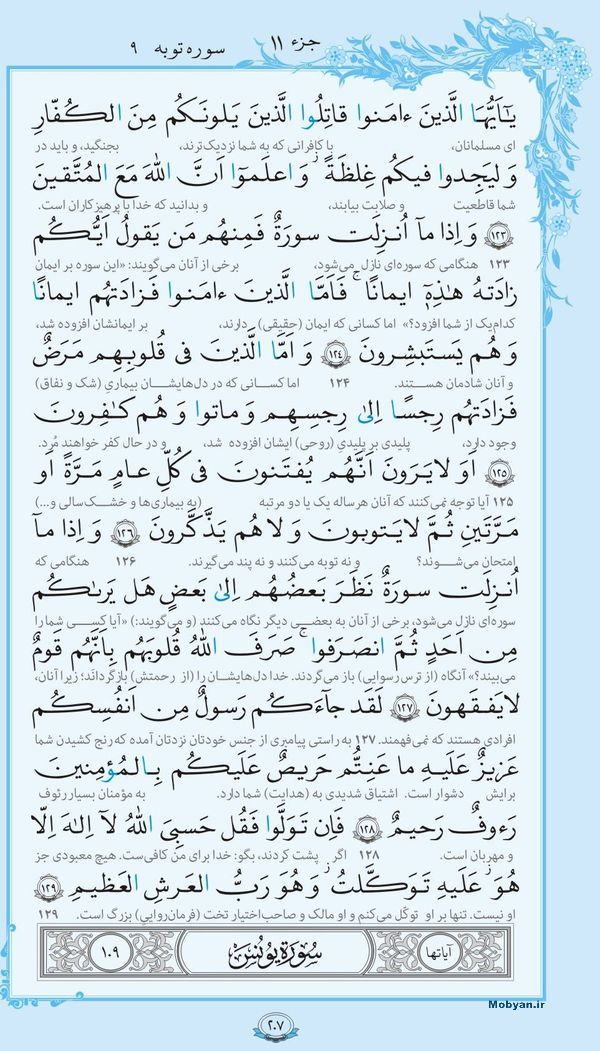 جزء ۱۱
سوره توبه ۹
يٰٓاَيُّهَا الَّذينَ ءامَنوا قاتِلُوا الَّذينَ يَلونَكُم مِنَ الكُفّارِ
ای مسلمانان، با کافرانی که به شما نزدیک‌ترند، بجنگید، و باید در
وَليَجِدوا فيكُم غِلظَةً ۚ وَاعلَموٓا اَنَّ اللّٰهَ مَعَ المُتَّقينَ
شما قاطعیت و صلابت بیابند، و بدانید که خدا با پرهیزکاران است.
﴿۱۲۳﴾ وَ اِذا مآ اُنزِلَت سورَةٌ فَمِنهُم مَن يَقولُ اَيُّكُم
۱۲۳ هنگامی که سوره‌ای نازل می‌شود، برخی از آنان می‌گویند: «این سوره بر ایمان
زادَتهُ هٰذِهٓ ايمانًا ۚ فَاَمَّا الَّذينَ ءامَنوا فَزادَتهُم ايمانًا
کدام‌یک از شما افزود؟» اما کسانی که ایمان (حقیقی) دارند، بر ایمانشان افزوده شد،
وَ هُم يَستَبشِرونَ ﴿۱۲۴﴾ وَ اَمَّا الَّذينَ فى قُلوبِهِم مَرَضٌ
و آنان شادمان هستند. ۱۲۴ اما کسانی که در دل‌هایشان بیماریِ (شک و نفاق)
فَزادَتهُم رِجسًا اِلىٰ رِجسِهِم وَ ماتوا وَ هُم كٰفِرونَ
وجود دارد، پلیدی بر پلیدیِ (روحی) ایشان افزوده شد، و در حال کفر خواهند مُرد.
﴿۱۲۵﴾ اَوَ لايَرَونَ اَنَّهُم يُفتَنونَ فى كُلِّ عامٍ مَرَّةً اَو
۱۲۵ آیا توجه نمی‌کنند که آنان هرساله یک یا دو مرتبه (به بیماری‌ها و خشک‌سالی و...)
مَرَّتَينِ ثُمَّ لايَتوبونَ وَ لا هُم يَذَّكَّرونَ ﴿۱۲۶﴾ وَ اِذا مآ
امتحان می‌شوند؟ و نه توبه می‌کنند و نه پند می‌گیرند. ۱۲۶ هنگامی که
اُنزِلَت سورَةٌ نَظَرَ بَعضُهُم اِلىٰ بَعضٍ هَل يَرىٰكُم
سوره‌ای نازل می‌شود، برخی از آنان به بعضی دیگر نگاه می‌کنند (و می‌گویند:) «آیا کسی شما را
مِن اَحَدٍ ثُمَّ انصَرَفوا ۚ صَرَفَ اللّٰهُ قُلوبَهُم بِاَنَّهُم قَومٌ
می‌بیند؟» آنگاه (از ترس رسوایی) باز می‌گردند. خدا دل‌هایشان را (از رحمتش) بازگرداند؛ زیرا آنان،
لايَفقَهونَ ﴿۱۲۷﴾ لَقَد جآءَكُم رَسولٌ مِن اَنفُسِكُم
افرادی هستند که نمی‌فهمند. ۱۲۷ به راستی پیامبری از جنس خودتان نزدتان آمده که رنج کشیدن شما
عَزيزٌ عَلَيهِ ما عَنِتُّم حَريصٌ عَلَيكُم بِالمُؤمِنينَ
برایش دشوار است. اشتیاق شدیدی به (هدایت) شما دارد. به مؤمنان بسیار رئوف
رَءوفٌ رَحيمٌ ﴿۱۲۸﴾ فَاِن تَوَلَّوا فَقُل حَسبِىَ اللّٰهُ لآ اِلٰهَ اِلّا
و مهربان است. ۱۲۸ اگر پشت کردند، بگو: خدا برای من کافی‌ست. هیچ معبودی جز
هُوَ ۖ عَلَيهِ تَوَكَّلتُ ۖ وَ هُوَ رَبُّ العَرشِ العَظيمِ ﴿۱۲۹﴾
او نیست. تنها بر او توکّل می‌کنم و او مالک و صاحب‌اختیار تخت (فرمان‌رواییِ) بزرگ است. ۱۲۹
آیاتها سُورَةُ يُونُسَ ۱۰۹
Mobyan.ir
۲۰۷